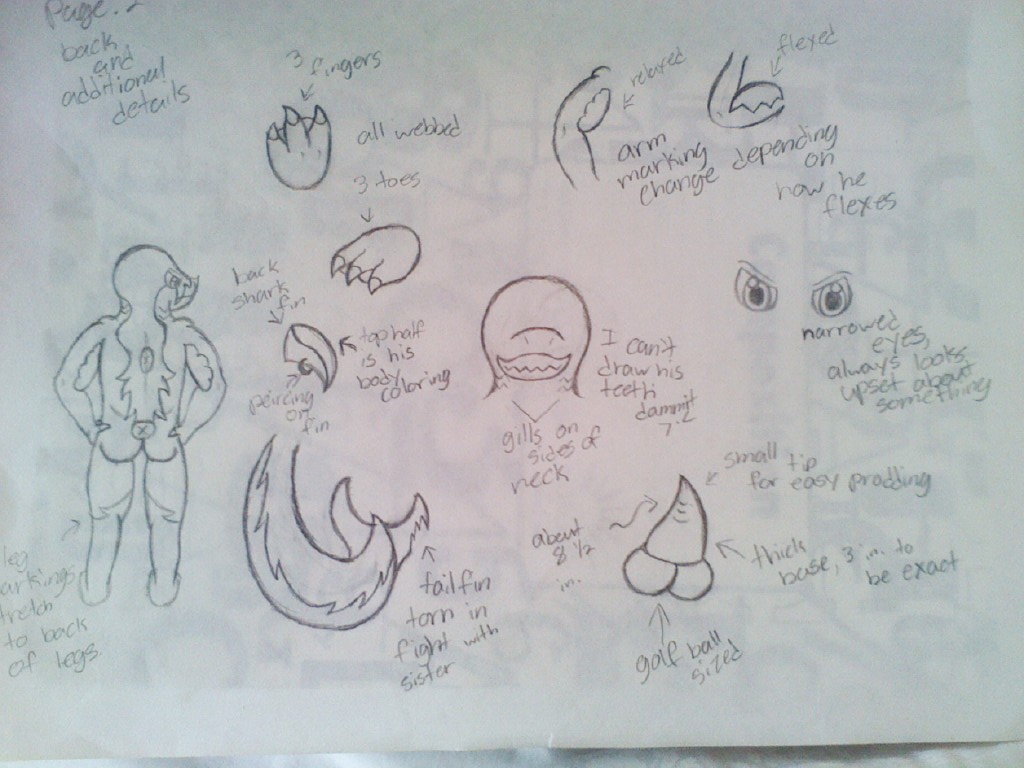 Page. 2
back
and
additional
details
3
fingers
all webbed
3 toes
relaxed
flexed
arm
marking
change
depending
on
how he
flexes
back
shark
fin
top half
is his
body
coloring
peircing
on
fin
I
can't
draw his
teeth
dammit
gills on
sides of
neck
narrowed
eyes,
always looks
upset about
something
small tip
for easy prodding
about
8 1/2
in.
thick
base, 3 in. to
be exact
golf ball
sized
tailfin
torn in
fight with
sister
leg
arkings
tretch
to back
of legs.